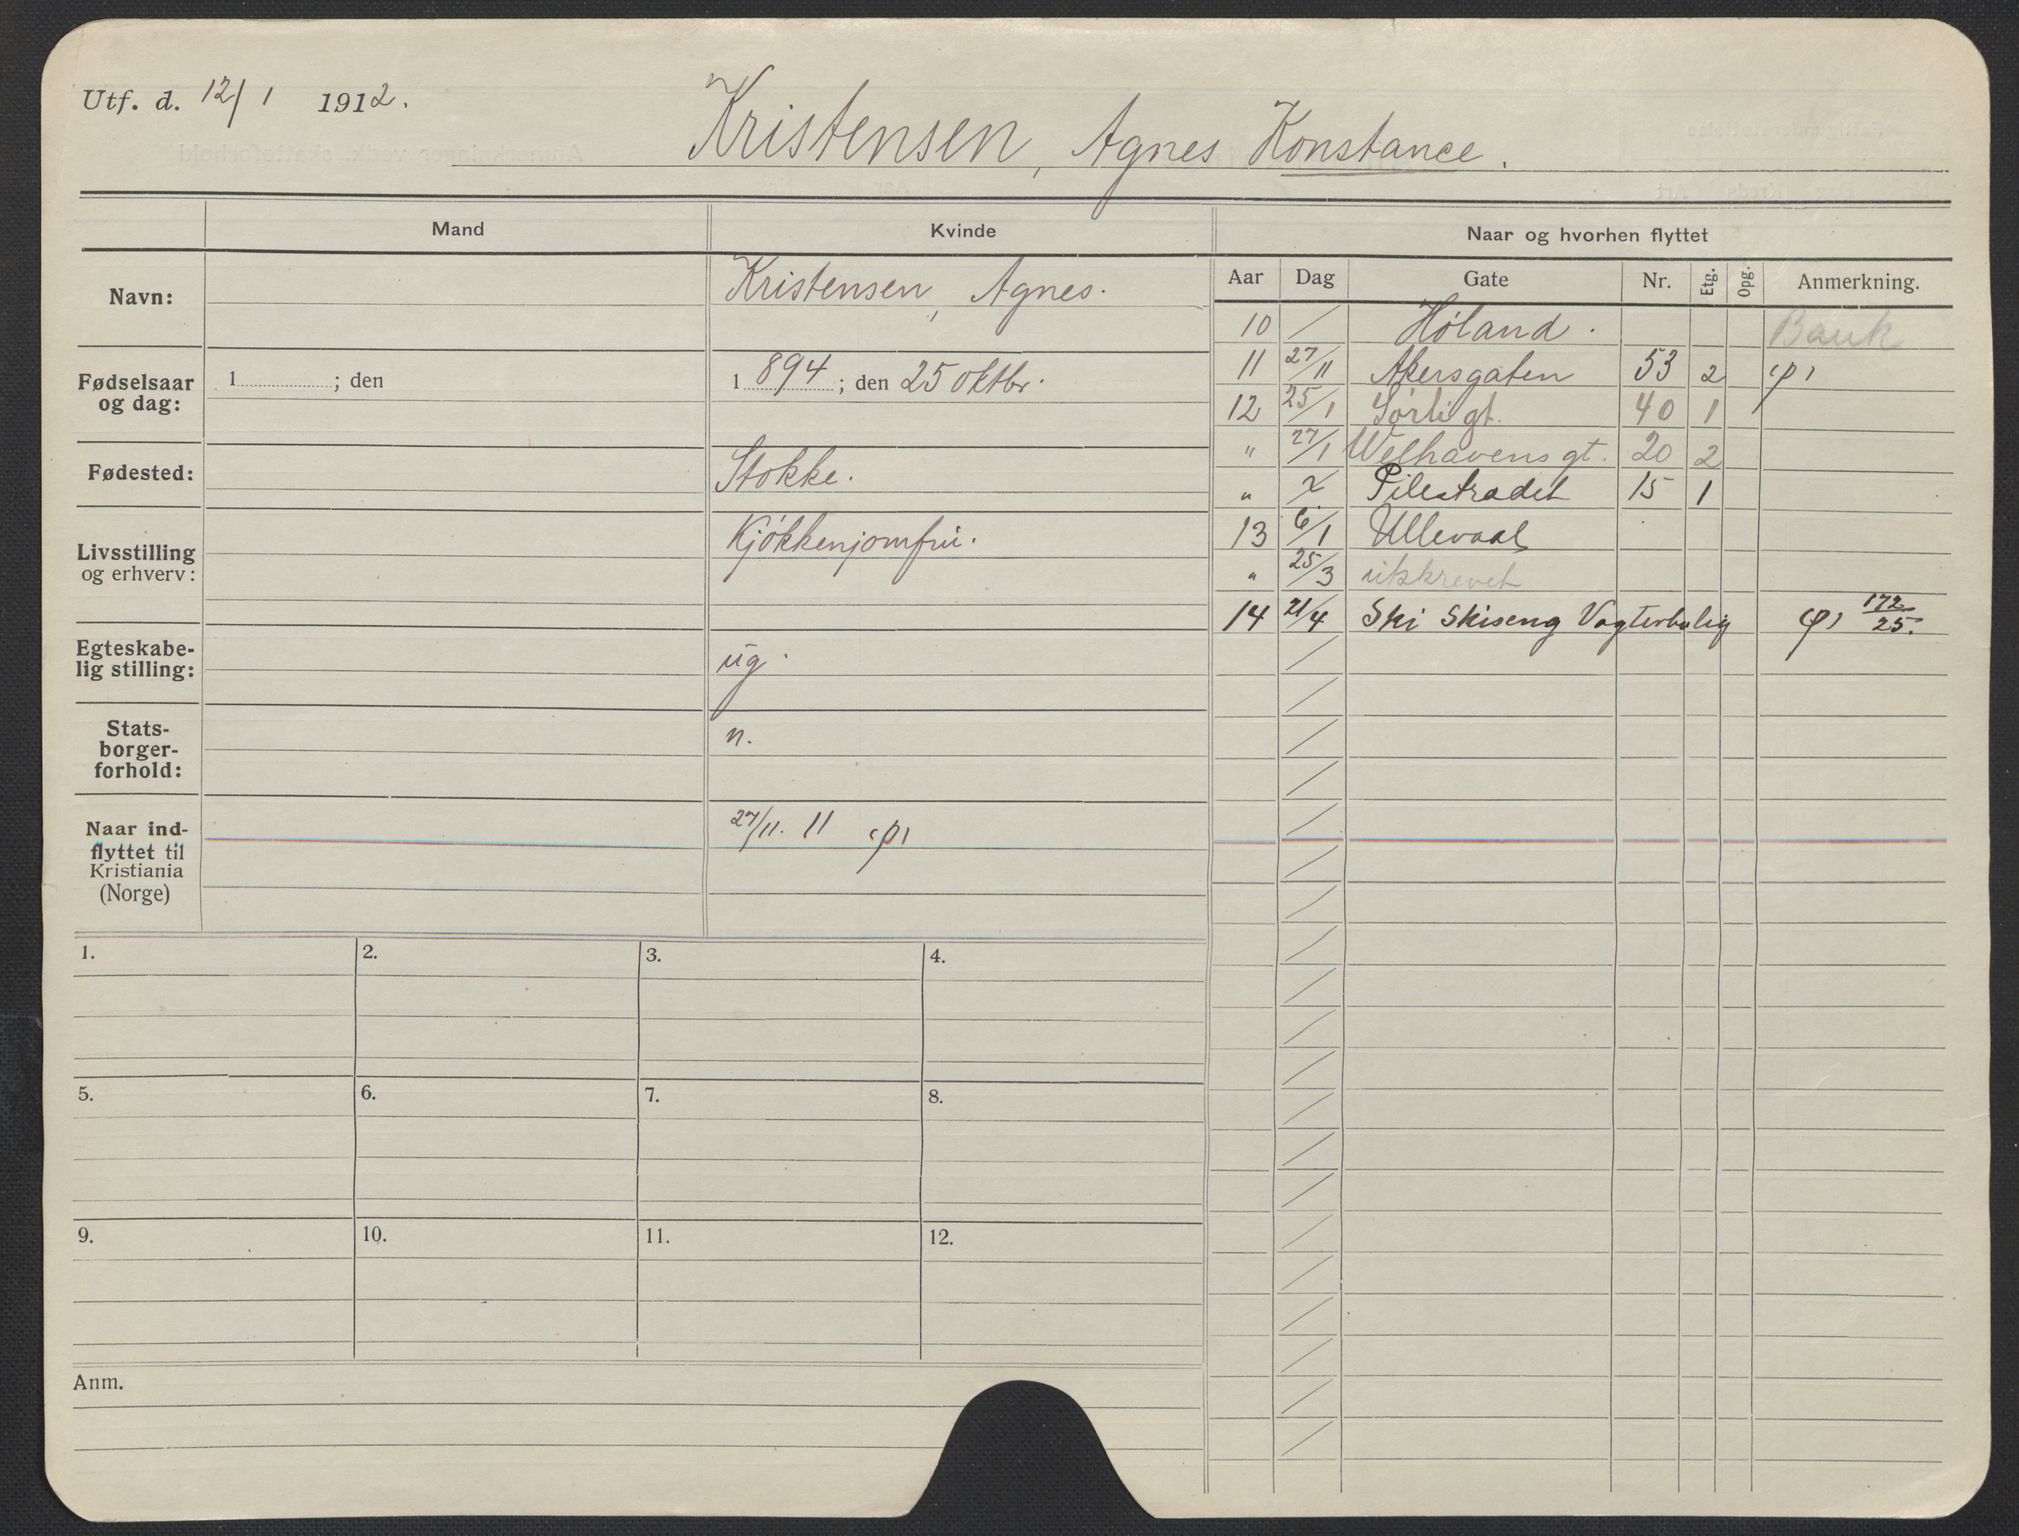 Utf. d. 12/1 1912.
Kristensen, Agnes Konstance.
Mand
Kvinde
Naar og hvorhen flyttet
Navn:
Kristensen, Agnes.
Fødselsaar og dag:
1 ; den
1894; den 25 oktbr.
Fødested:
Stokke.
Livsstilling og erhverv:
Kjøkkenjomfru.
Egteskabe-
lig stilling:
ug.
Stats-
borger-
forhold:
n.
Naar ind-
flyttet til
Kristiania
(Norge)
27/11. 11 (p)
Aar Dag Gate Nr. Etg. Opg. Anmerkning.
10 / Høland. Bauk
11 27/11 Akersgaten 53 2 (p)
12 25/1 Sørligt. 40 1
" 27/1 Welhavensgt. 20 2
" Pilestradet 15 1
13 6/1 Ullevaal
" 25/3 utskrevet
14 21/4 Ski Skiseng Vogterbolig (p) 172/25.
1. 2. 3. 4.
5. 6. 7. 8.
9. 10. 11. 12.
Anm.